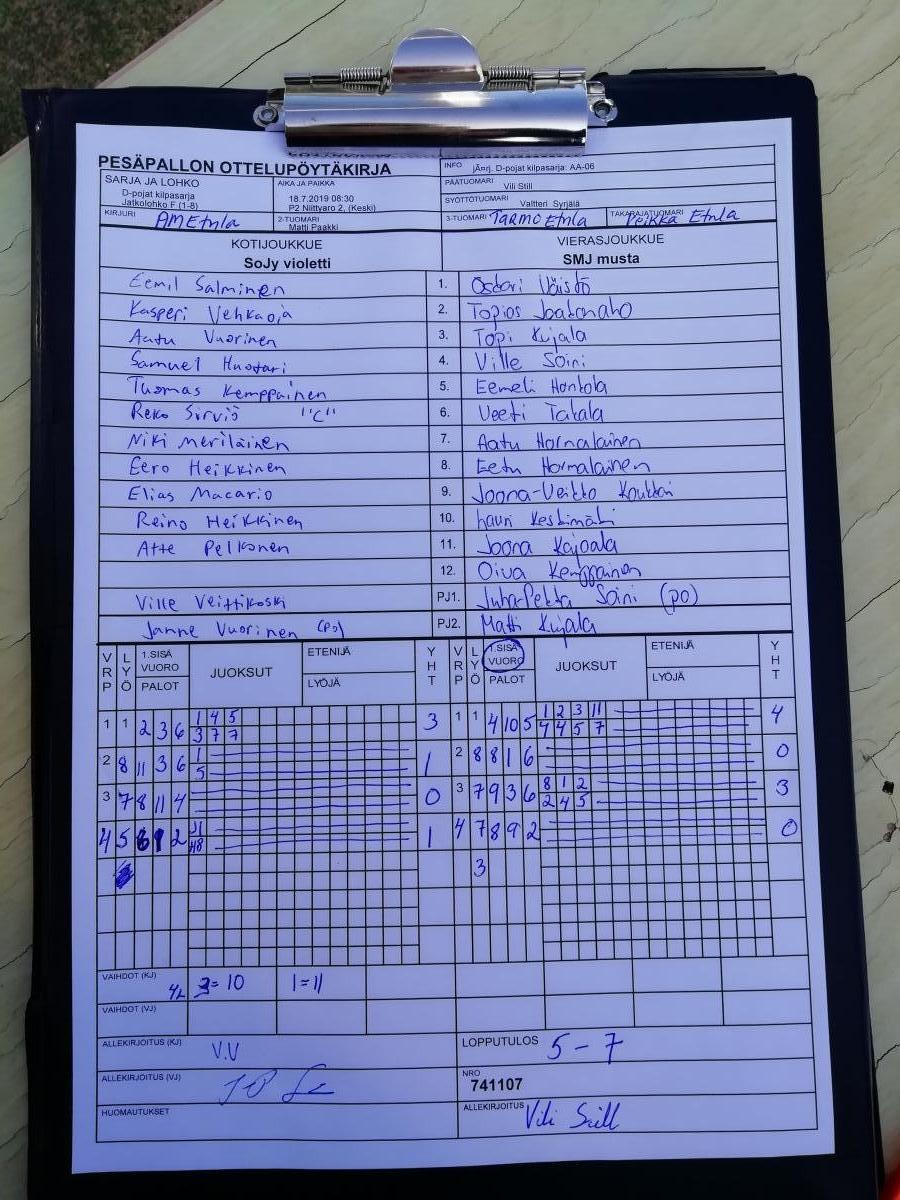 PESÄPALLON OTTELUPÖYTÄKIRJA
INFO jÄnrj. D-pojat kilpasarja: AA-06
SARJA JA LOHKO
D-pojat kilpasarja
Jatkolohko F (1-8)
AIKA JA PAIKKA
18.7.2019 08:30
P2 Niittyaro 2, (Keski)
PÄÄTUOMARI Vili Still
SYÖTTÖTUOMARI Valtteri Syrjälä
KIRJURI AM Etnla
2-TUOMARI
Matti Paakki
3-TUOMARI TARMO Etnla
TAKARAJATUOMARI Peikka Etnla
KOTIJOUKKUE
SoJy violetti
VIERASJOUKKUE
SMJ musta
Eemil Salminen 1. Oskari Väistö
Kasperi Vehkaoja 2. Topias Jaakonaho
Aatu Vuorinen 3. Topi Kujala
Samuel Huotari 4. Ville Soini
Tuomas Kemppainen 5. Eemeli Hantola
Reko Sirviö "C" 6. Veeti Takala
Niki Meriläinen 7. Aatu Hornalainen
Eero Heikkinen 8. Eetu Hormalainen
Elias Macario 9. Joona-Veikko Koukkari
Reino Heikkinen 10. Lauri Keskimäki
Atte Pelkonen 11. Joona Kajaala
12. Oiva Kemppainen
Ville Veittikoski PJ1. Juha-Pekka Soini (po)
Janne Vuorinen (po) PJ2. Matti Kujala
VRP LYÖ 1.SISÄ VUORO PALOT JUOKSUT ETENIJÄ LYÖJÄ YHT VRP LYÖ 1.SISÄ VUORO PALOT JUOKSUT ETENIJÄ LYÖJÄ YHT
1 1 2 3 6 1 4 5 3 1 1 4 10 5 1 2 3 11 4
3 7 7 4 4 5 7
2 8 11 3 6 1 1 2 8 8 1 6 0
5
3 7 8 11 4 0 3 7 9 3 6 8 1 2 3
2 4 5
4 5 8 1 2 1 4 7 8 9 2 0
3
VAIHDOT (KJ) 3=10 1=11
VAIHDOT (VJ)
ALLEKIRJOITUS (KJ) V.V
LOPPUTULOS 5-7
ALLEKIRJOITUS (VJ)
NRO
741107
HUOMAUTUKSET
ALLEKIRJOITUS Vili Still